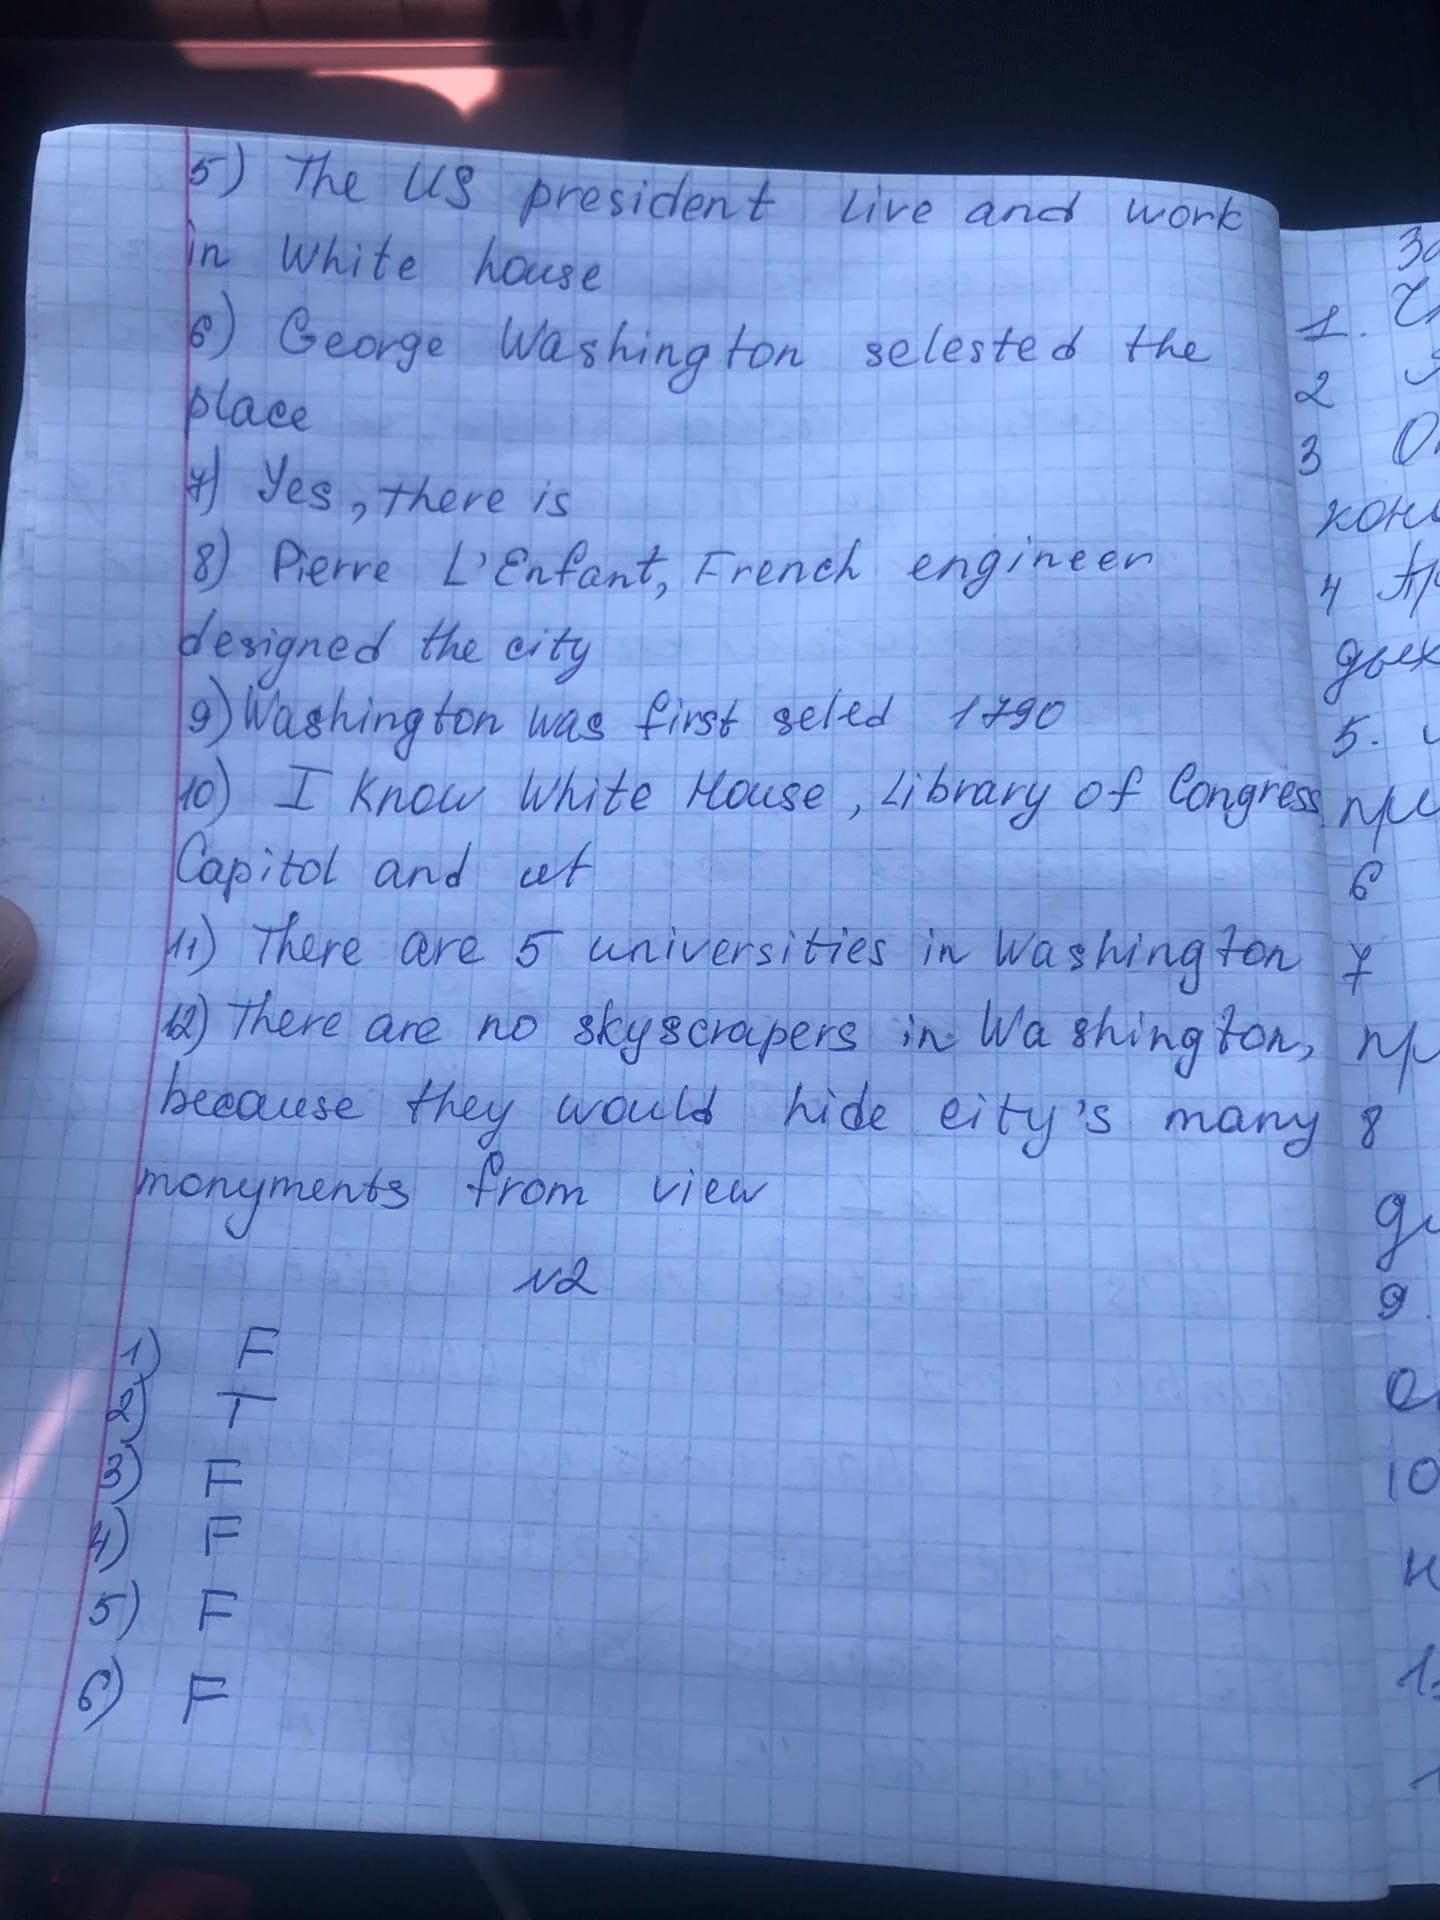 5) The US president Live and work
in White house
6) George Washington selested the
place
7) Yes, there is
8) Pierre L'Enfant, French engineer
designed the city
9) Washington was first seled 1790
10) I know White House, Library of Congress
Capitol and et
11) There are 5 universities in Washington
12) There are no skyscrapers in Washington,
because they would hide city's many
monyments from view
N2
1) F
2) T
3) F
4) F
5) F
6) F
1.
2
3
конс
4
дых
5.
при
6
7
пр
8
9.
10